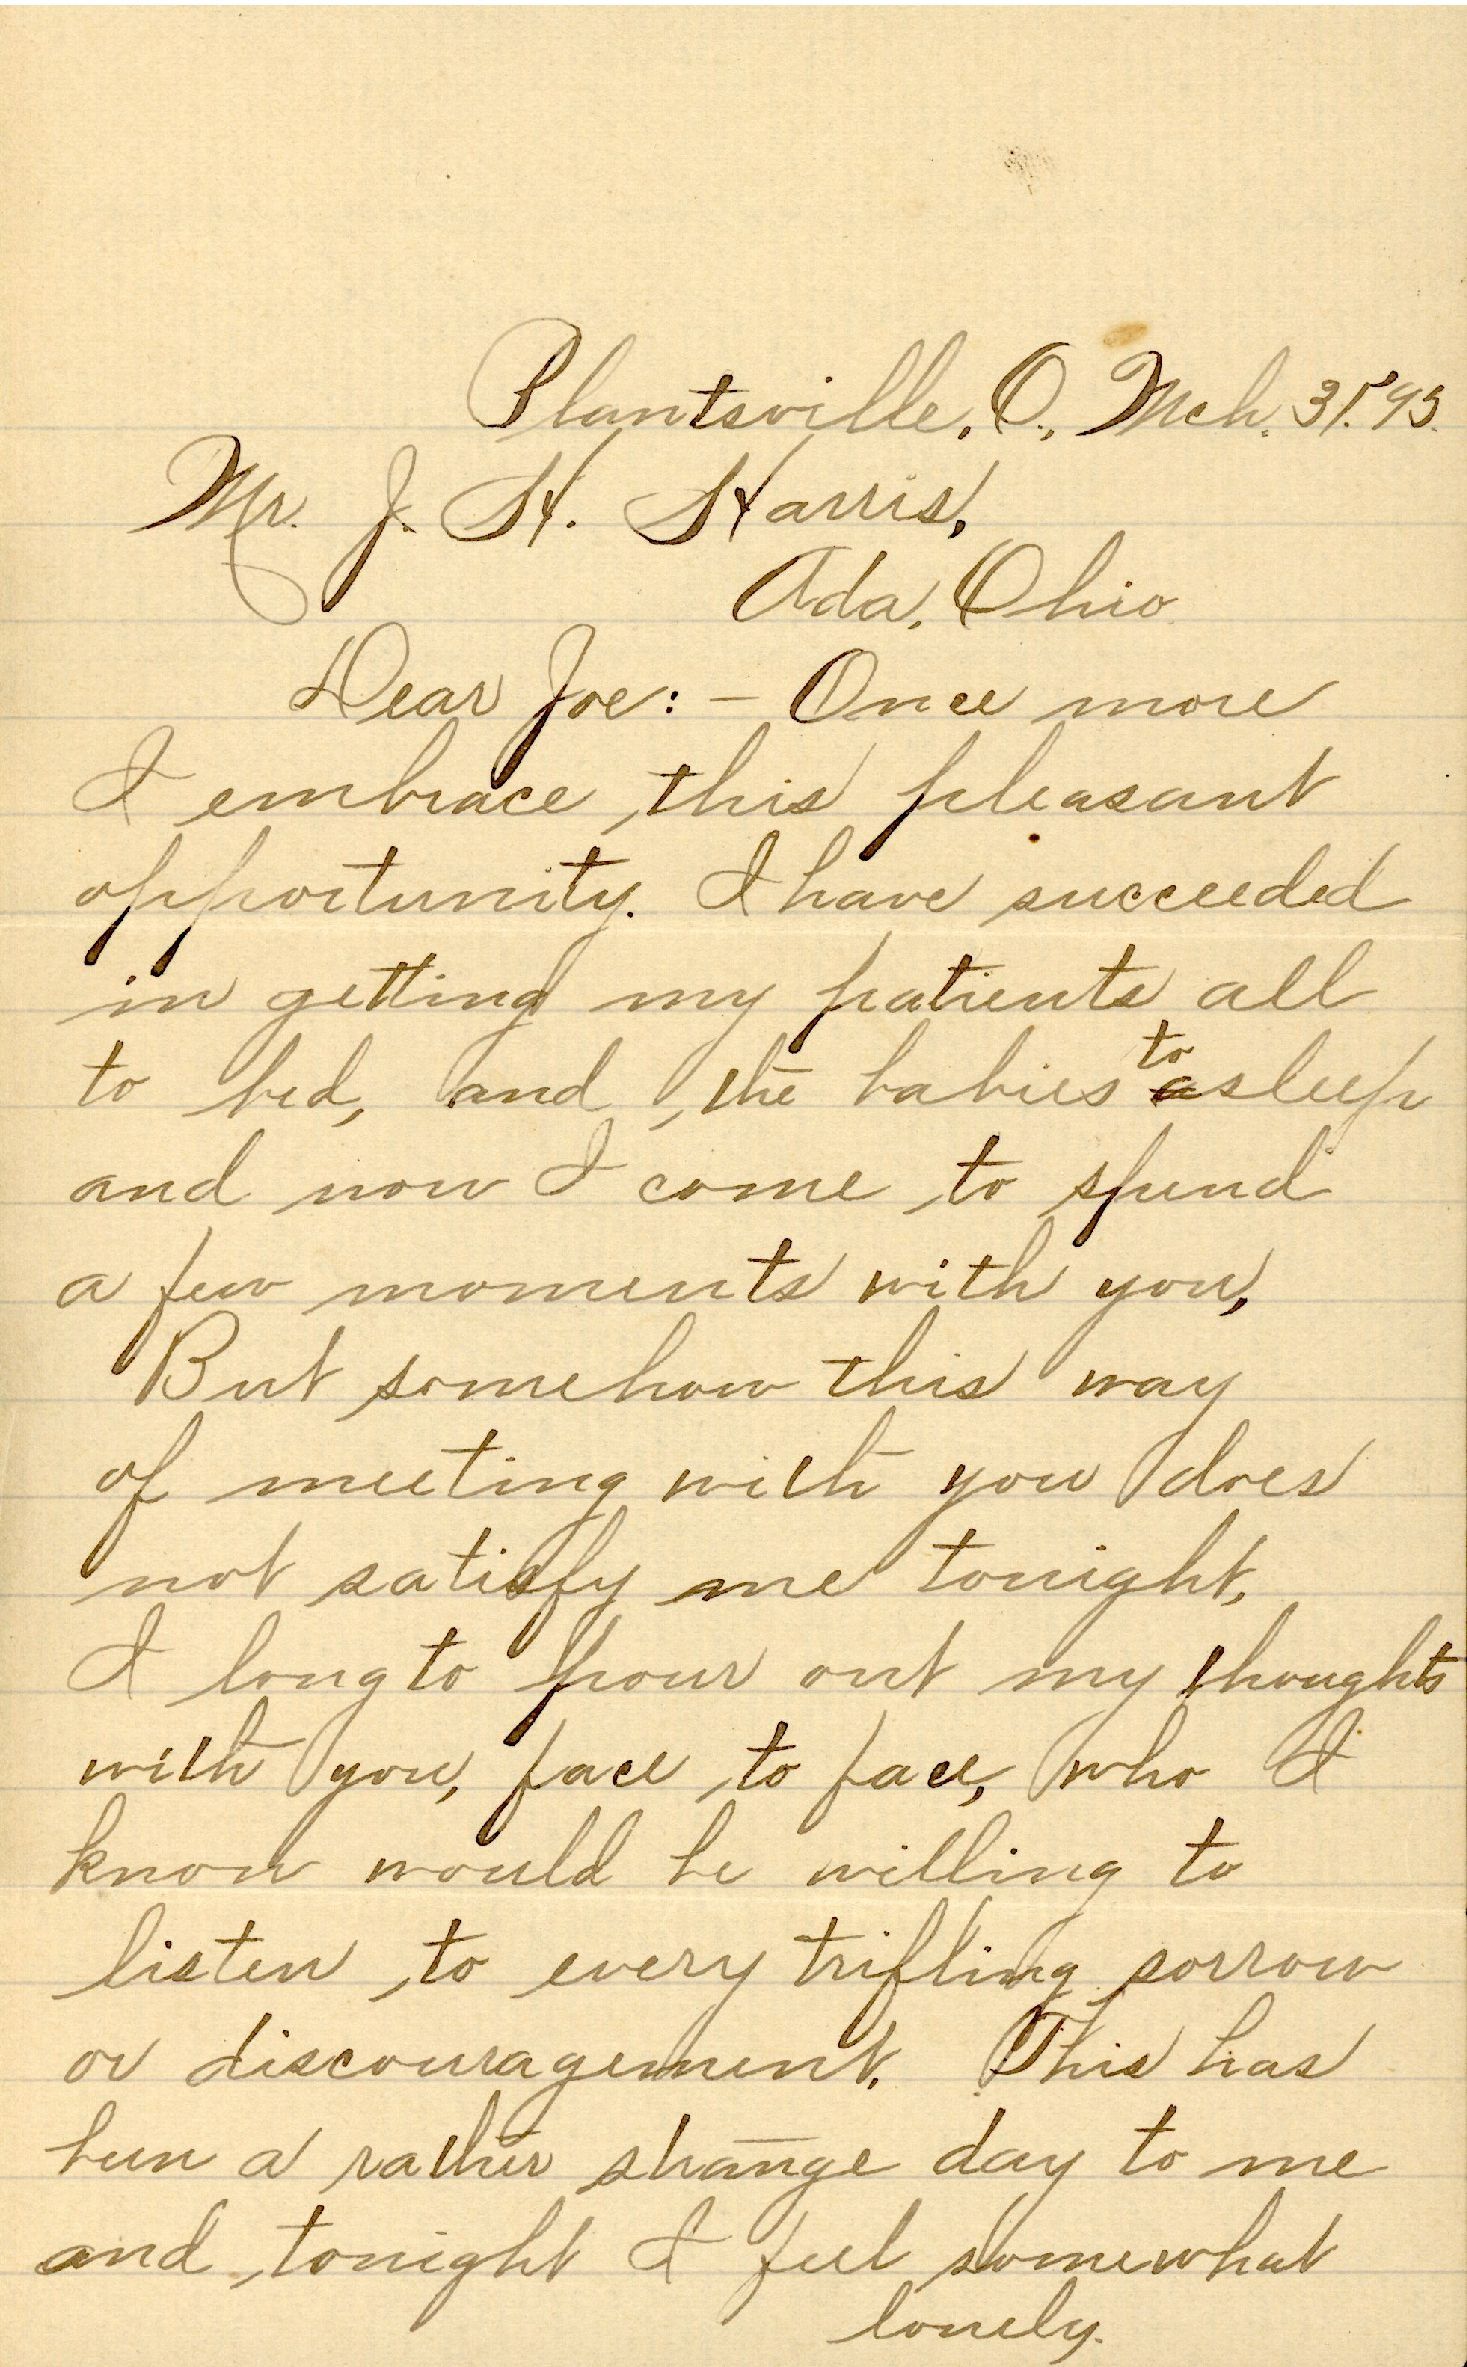 Plantsville, O., Mch. 31. '95.
Mr. J. H. Harris,
Ada, Ohio
Dear Joe: - Once more
I embrace this pleasant
opportunity. I have succeeded
in getting my patients all
to bed, and the babies to asleep
and now I come to spend
a few moments with you,
But somehow this way
of meeting with you does
not satisfy me tonight,
I long to pour out my thoughts
with you, face to face, who I
know would be willing to
listen to every trifling sorrow
or discouragement. This has
been a rather strange day to me
and tonight I feel somewhat
lonely.